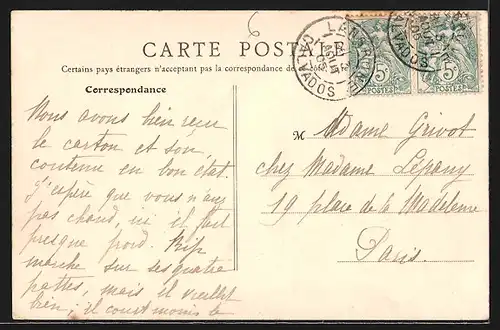 6
CARTE POSTALE
Certains pays étrangers n'acceptant pas la correspondance de
Correspondance
Nous avons bien reçu
le carton et son
contenu en bon état.
J'espère que vous n'avez
pas chaud, ici il fait
presque froid. Rip
marche sur ses quatre
pattes, mais il vieillit
bien; il court moins le
M Madame Grivot
chez Madame Lépany
19 place de la Madeleine
Paris.
CALVADOS
AOUT
05
5c
POSTES
5c
POSTES
CALVADOS
AOUT
05